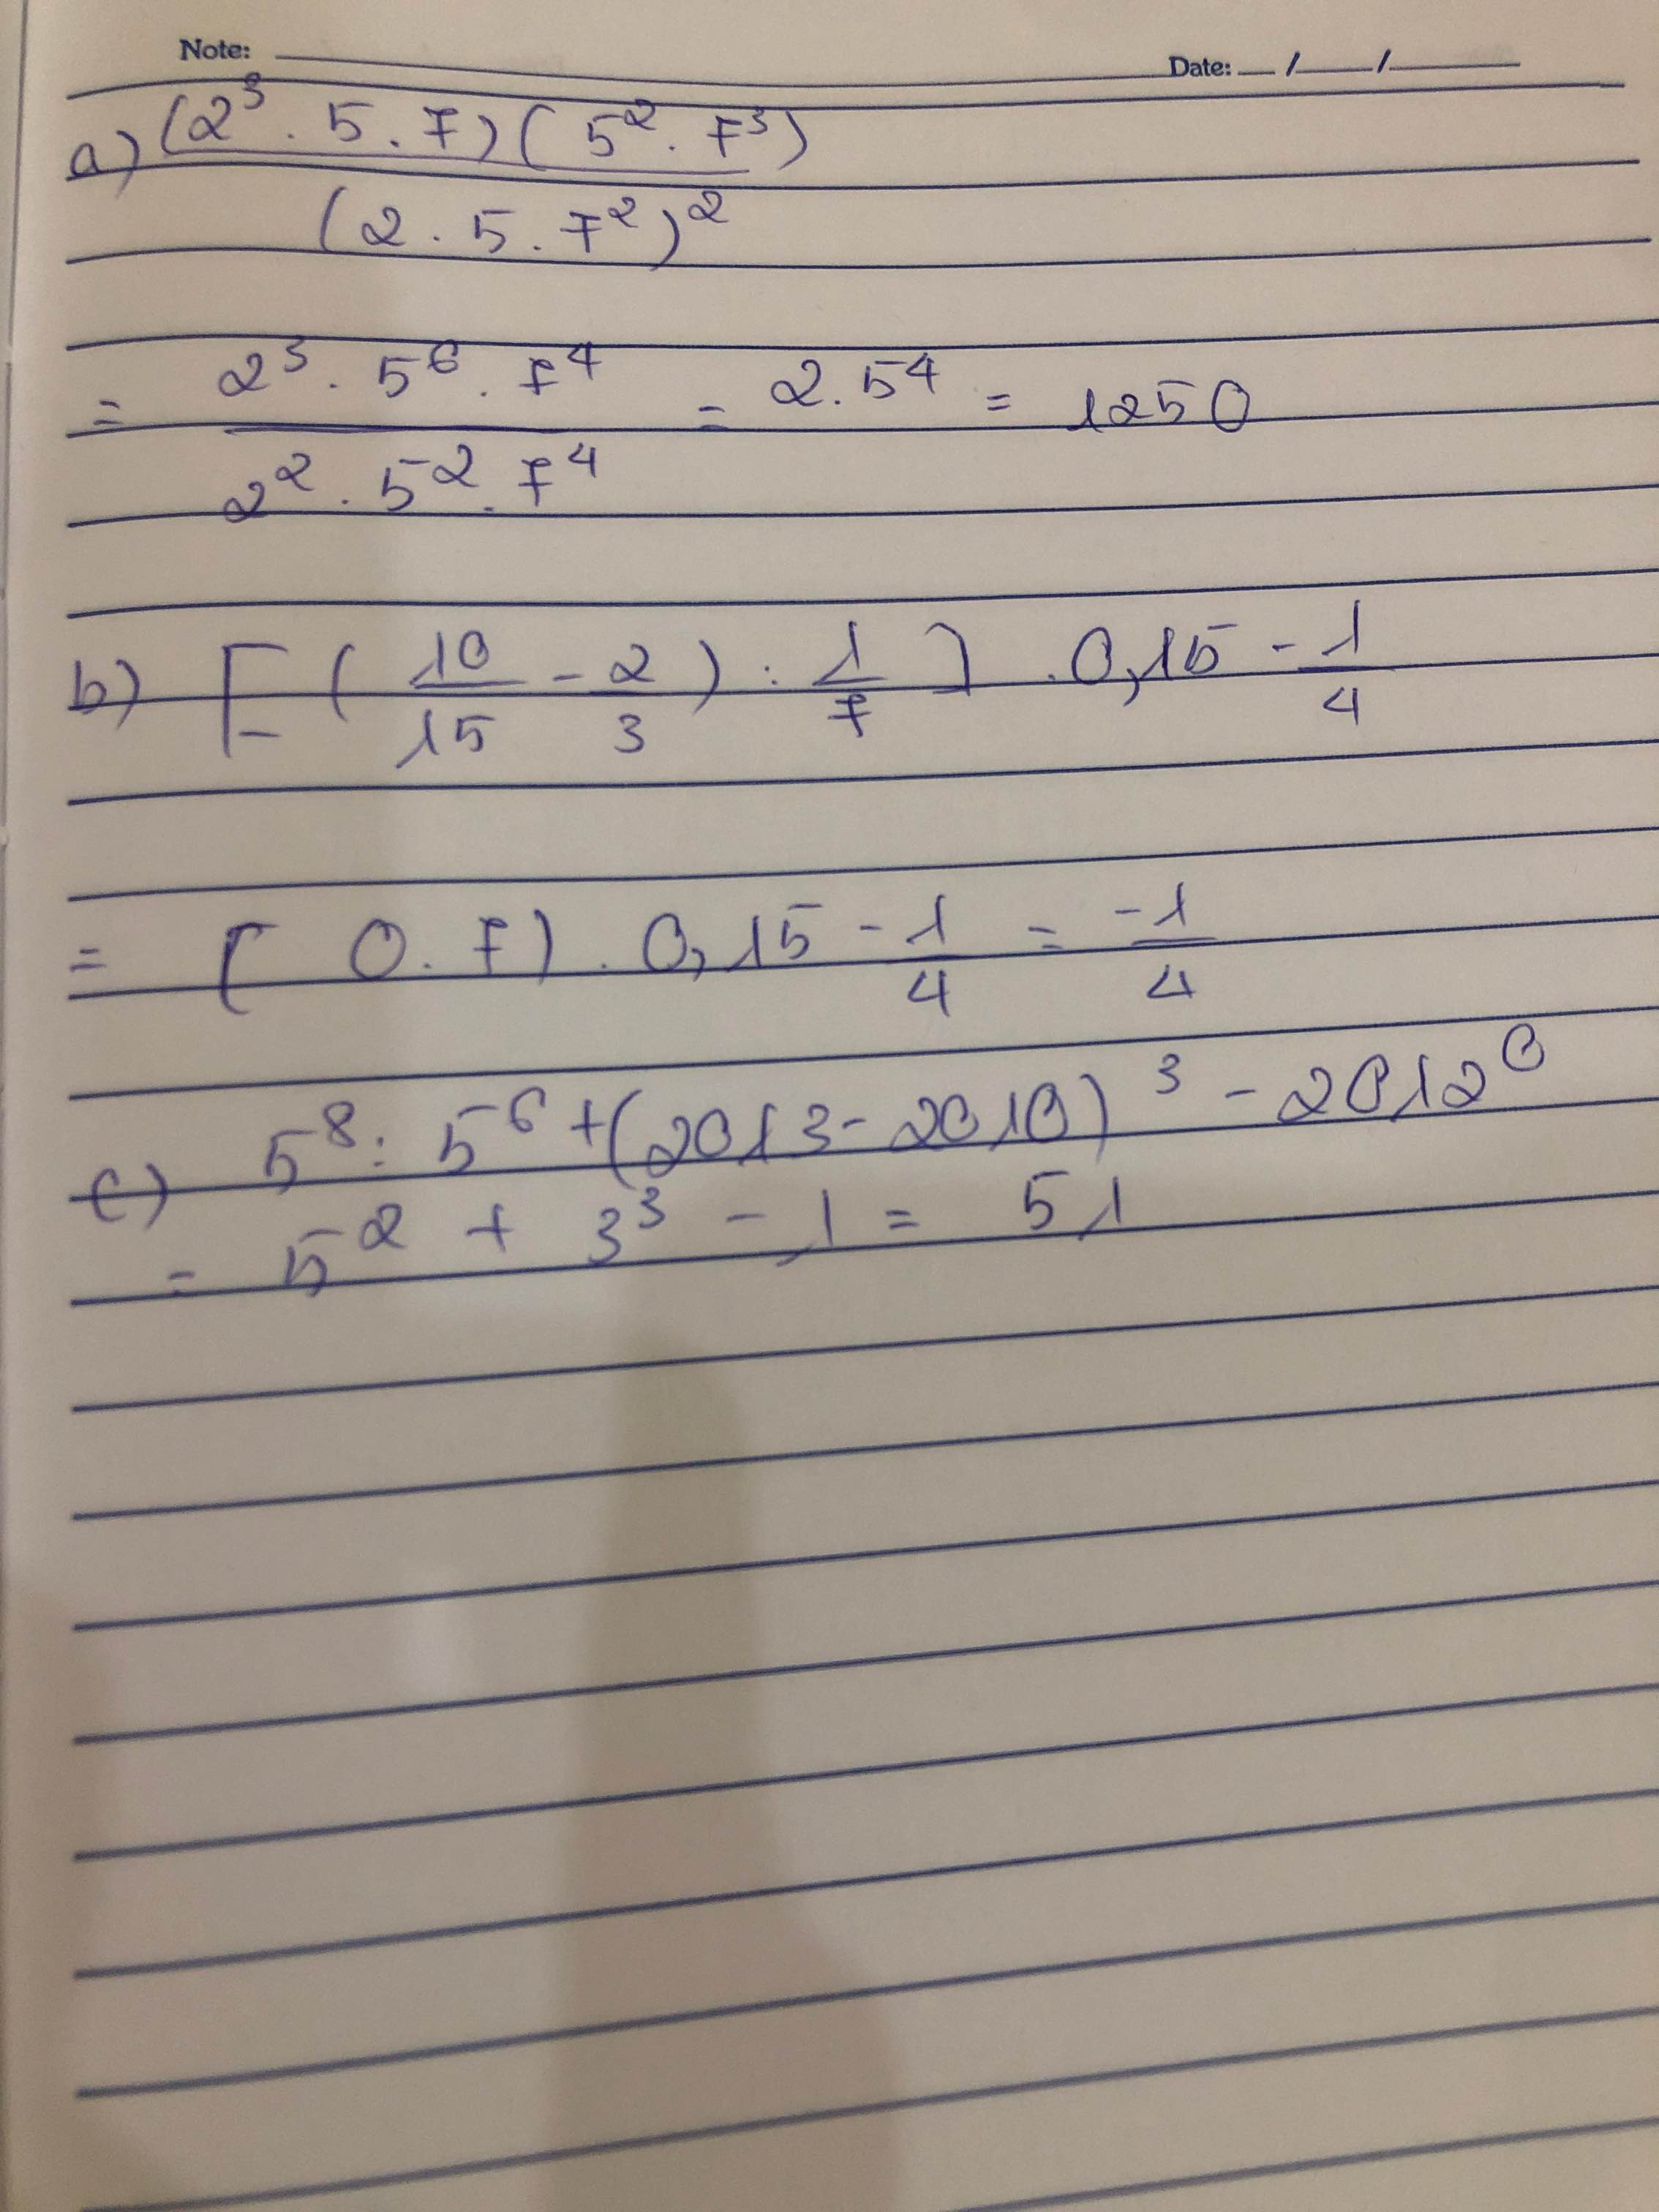 Note: Date: / /
a) (2³ . 5 . 7) ( 5² . 7³)
(2 . 5 . 7²)²
= 2³ . 5⁶ . 7⁴ = 2 . 5⁴ = 1250
2² . 5² . 7⁴
b) [ ( 10/15 - 2/3 ) : 1/7 ] . 0,15 - 1/4
= [ 0 . 7 ) . 0,15 - 1/4 = -1/4
c) 5⁸ : 5⁶ + (2013 - 2010)³ - 2012⁰
= 5² + 3³ - 1 = 51